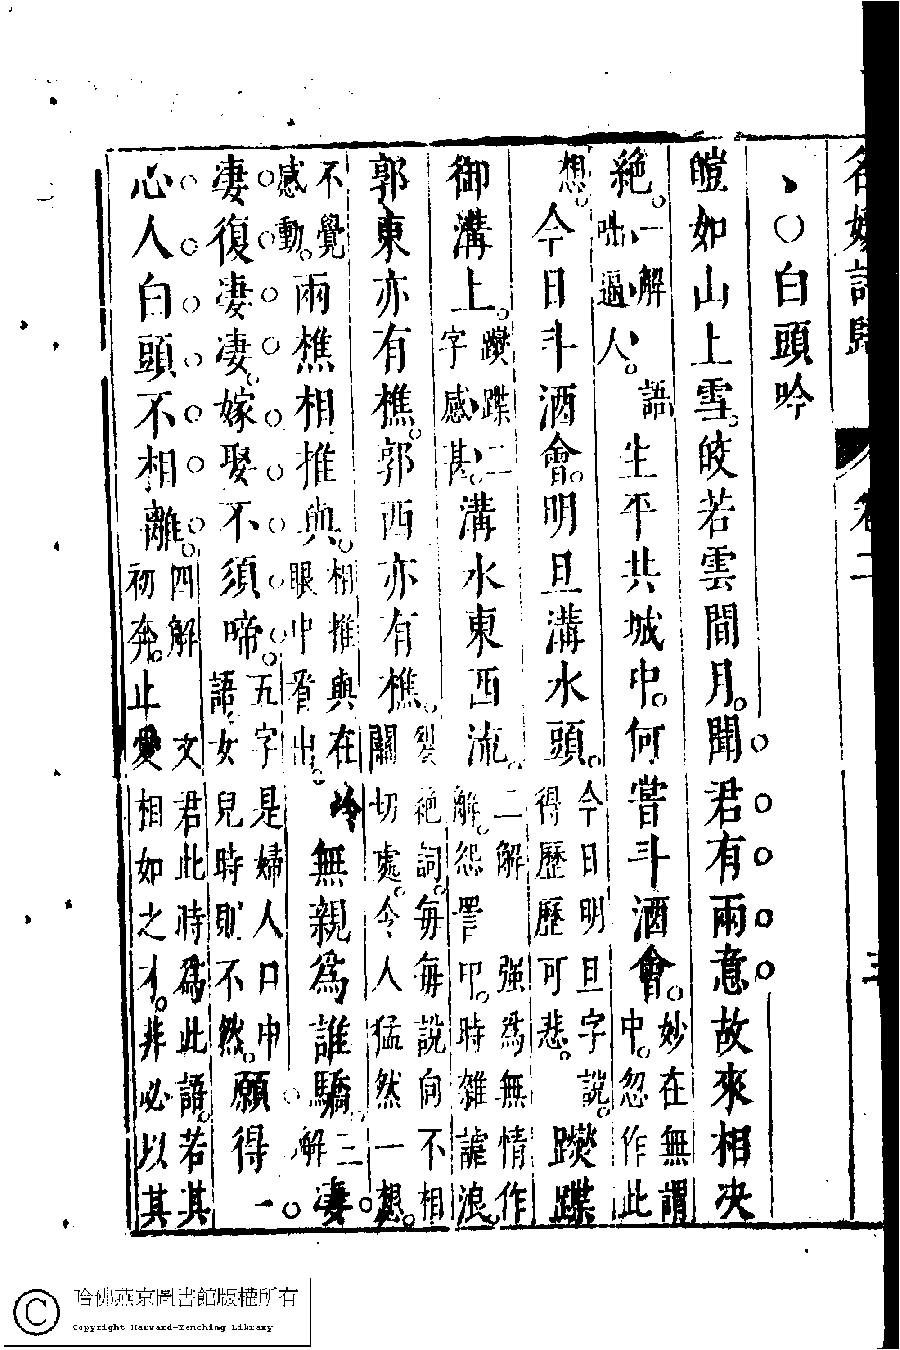 名媛詩歸 卷二 三
、○白頭吟
皚如山上雪。皎若雲間月。聞君有兩意故來相決
絶。一解 語咄、逼、人。生平共城中。何嘗斗酒會。妙在無謂中。忽作此
想。今日斗酒會。明旦溝水頭。今日明旦字說。得歷歷可悲。躞蹀
御溝上。躞蹀二字感甚。溝水東西流。二解 強爲無情作解。怨詈叩。時雜謔浪。
郭東亦有樵。郭西亦有樵。裂絶詞。每每說向不相關切處。今人猛然一想。
不覺感動。兩樵相推與。相推與在冷眼中看出。無親爲誰驕。三解 凄
凄復凄凄。嫁娶不須啼。五字是婦人口中語。女兒時則不然。願得一
心人白頭不相離。四解 文君此時爲此語。若其初奔。止愛相如之才。非必以其
哈佛燕京圖書館版權所有
Copyright Harvard-Yenching Library